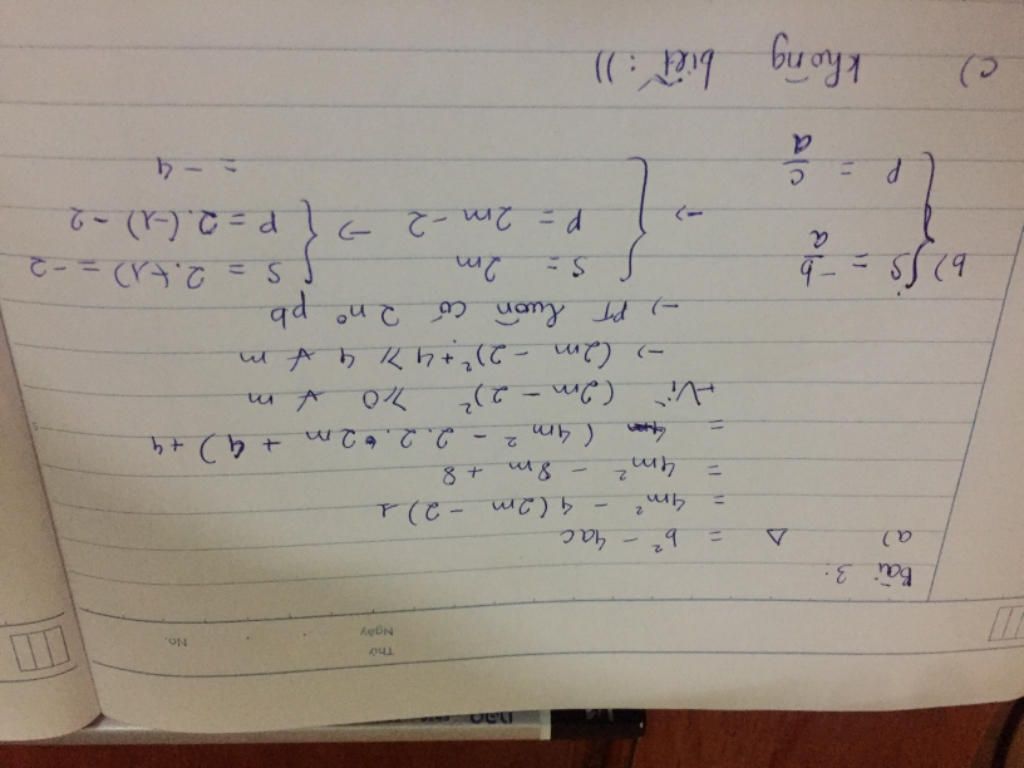 Thứ
Ngày
No.
Bài 3:
a) Δ = b² - 4ac
= 4m² - 4(2m - 2)1
= 4m² - 8m + 8
= (4m² - 2.2.2m + 4) + 4
+Vì (2m - 2)² ≥ 0 ∀ m
→ (2m - 2)² + 4 ≥ 4 ∀ m
→ PT luôn có 2 nº pb
b) { S = -b/a → { S = 2m → { S = 2.(-1) = -2
P = c/a P = 2m - 2 P = 2.(-1) - 2
= -4
c) không biết :))